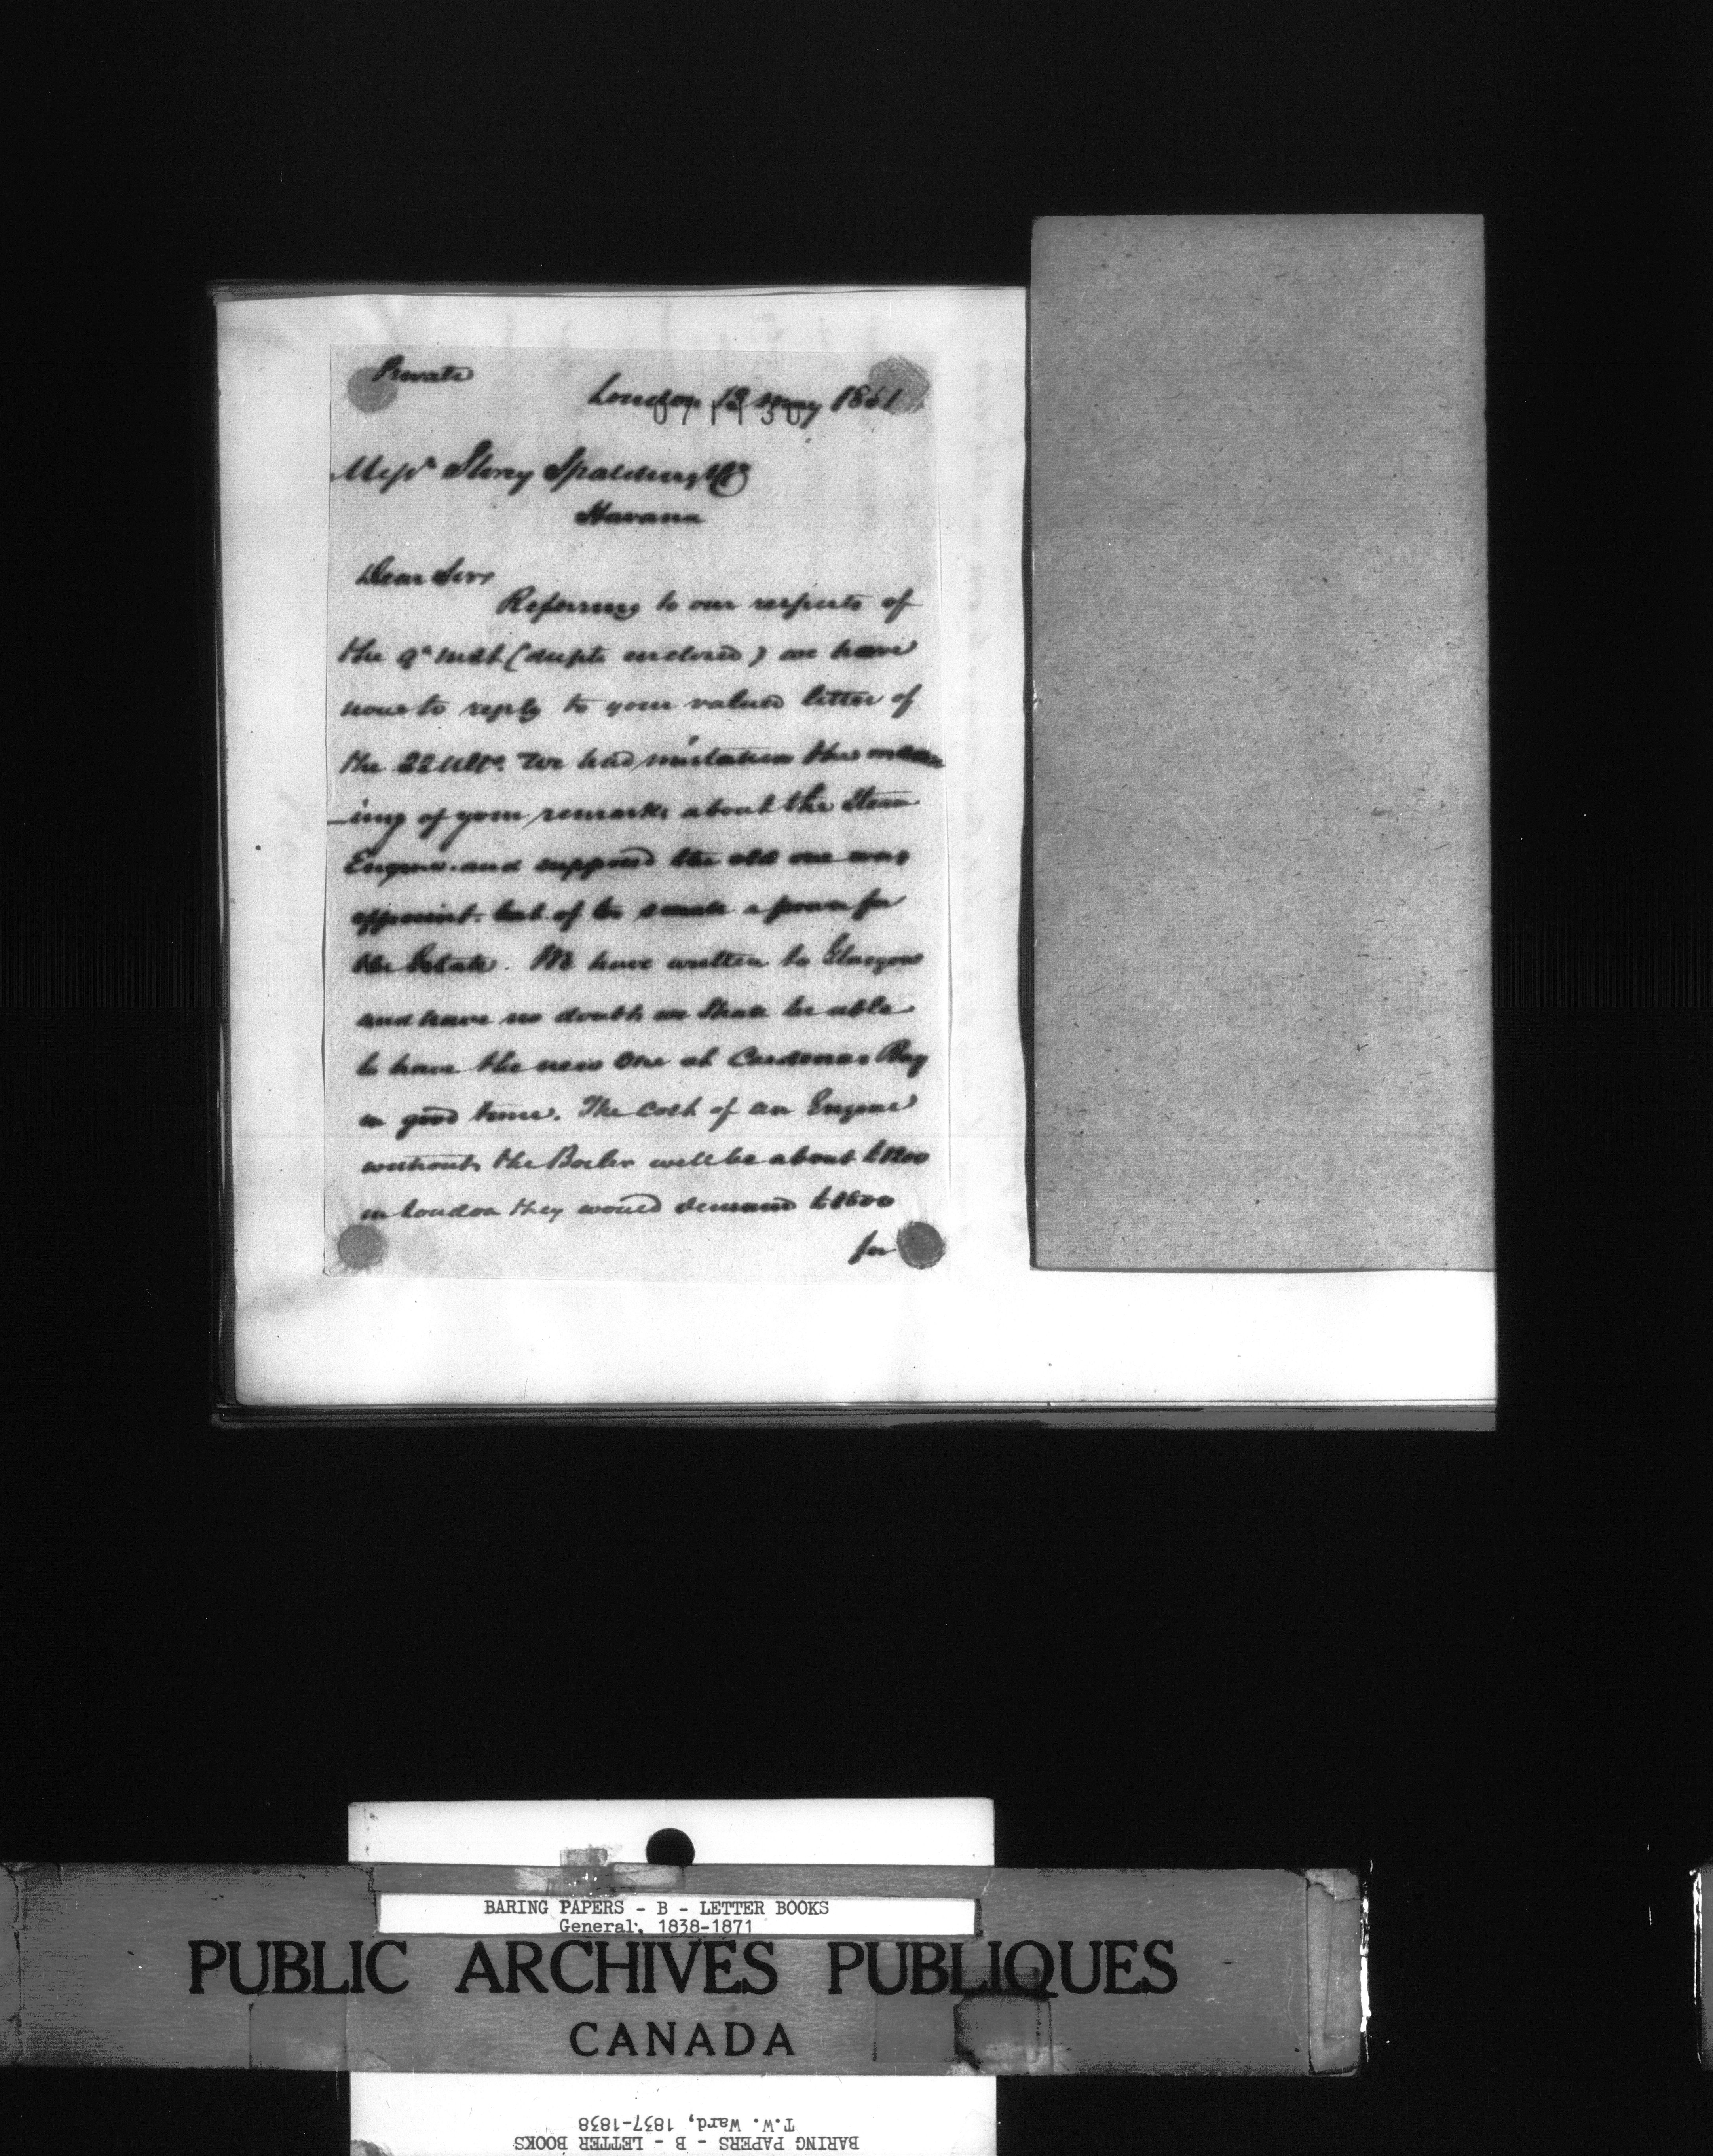 Private
London 13 May 1851
071130
Messrs Storey Spalding & Co
Havana
Dear Sirs
Referring to our respects of
the 9th inst (duplte enclosed) we have
now to reply to your valued letter of
the 22 Ulto. We had mistaken the mean
-ing of your remarks about the Steam
Engine and supposed the old one was
of to small a power for
the Estate. We have written to Glasgow
and have no doubt we shall be able
to have the new One at Cardenas Bay
in good time. The cost of an Engine
without the Boiler will be about £1200
in London they would demand £1600
for
BARING PAPERS - B - LETTER BOOKS
General, 1838-1871
PUBLIC ARCHIVES PUBLIQUES
CANADA
T.W. Ward, 1837-1838
BARING PAPERS - B - LETTER BOOKS